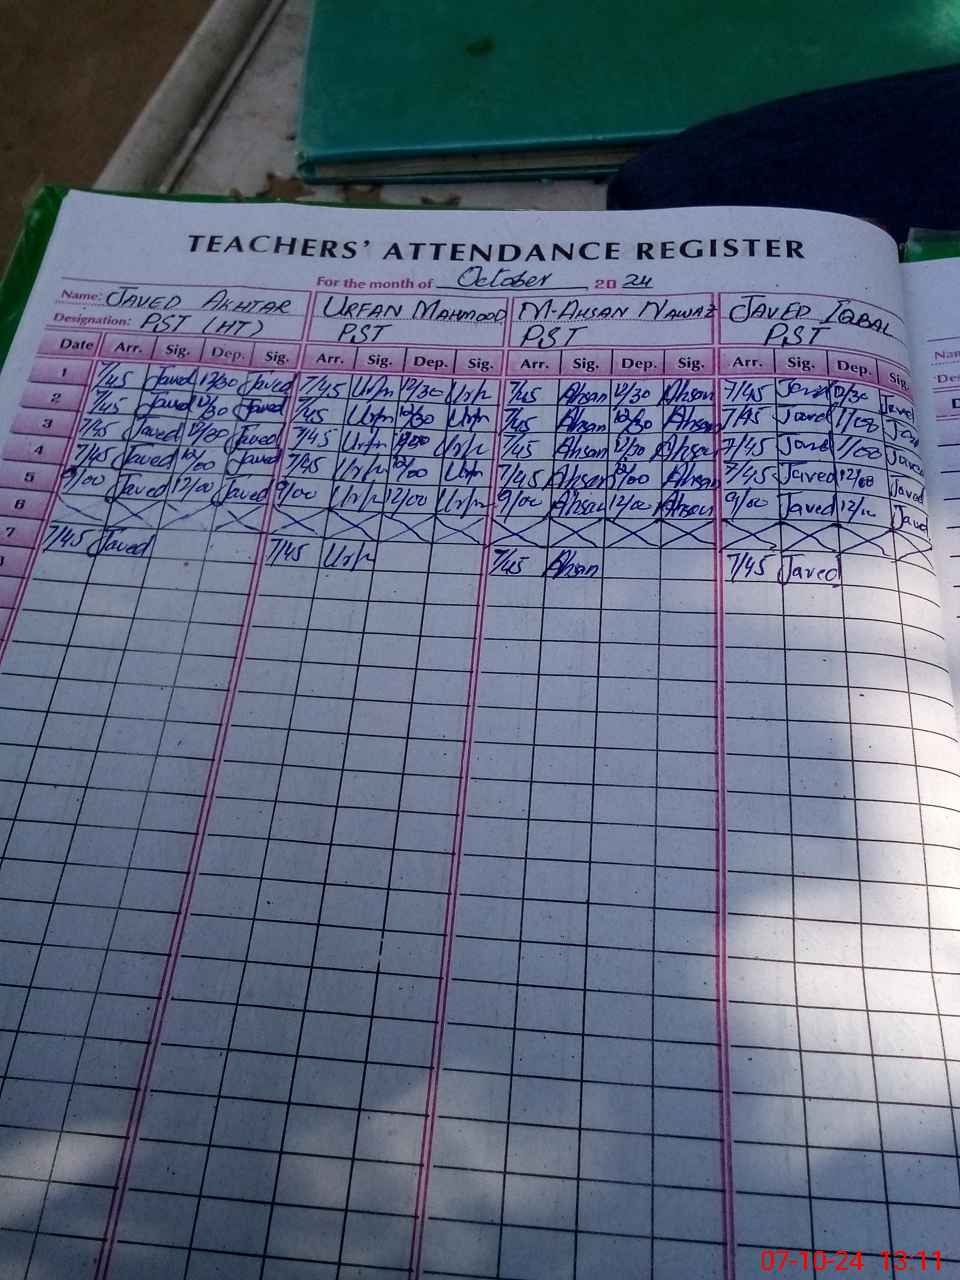 TEACHERS' ATTENDANCE REGISTER
For the month of October 2024
Name: JAVED AKHTAR URFAN MAHMOOD M-AHSAN NAWAZ JAVED IQBAL
Designation: PST (HT) PST PST PST
Date Arr. Sig. Dep. Sig. Arr. Sig. Dep. Sig. Arr. Sig. Dep. Sig. Arr. Sig. Dep. Sig.
1 7/45 Javed 12/30 Javed 7/45 Urfn 12/30 Urfn 7/45 Ahsan 12/30 Ahsan 7/45 Javed 12/30 Javed
2 7/45 Javed 12/30 Javed 7/45 Urfn 12/30 Urfn 7/45 Ahsan 12/30 Ahsan 7/45 Javed Javed
3 7/45 Javed 12/30 Javed 7/45 Urfn Urfn 7/45 Ahsan 12/30 Ahsan 7/45 Javed Javed
4 7/45 Javed 12/00 Javed 7/45 Urfn 12/00 Urfn 7/45 Ahsan 12/00 Ahsan 7/45 Javed 12/00 Javed
5 9/00 Javed 12/00 Javed 9/00 Urfn 12/00 Urfn 9/00 Ahsan 12/00 Ahsan 9/00 Javed Javed
6
7 7/45 Javed 7/45 Urfn 7/45 Ahsan 7/45 Javed
07-10-24 13:11